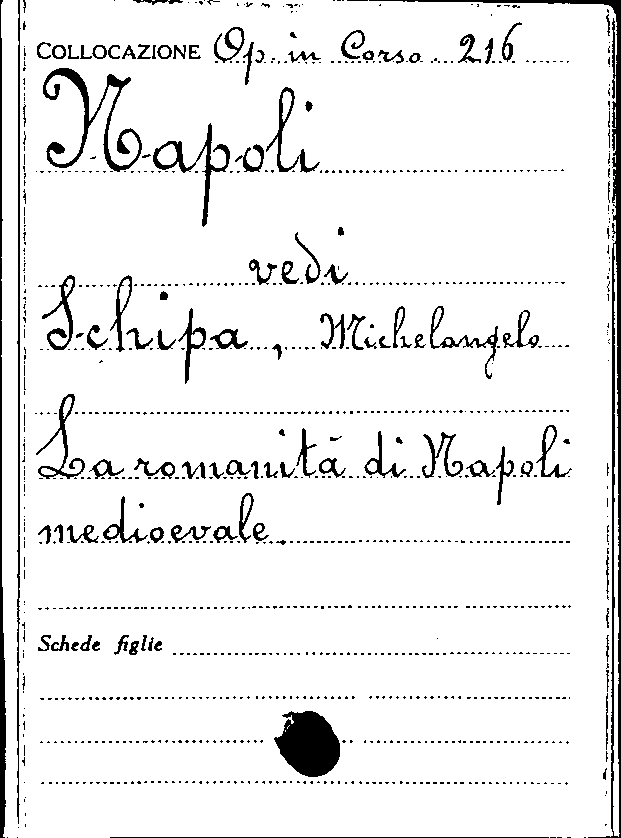 COLLOCAZIONE Op. in Corso. 216
Napoli
vedi
Schipa, Michelangelo
La romanità di Napoli
medioevale.
Schede figlie